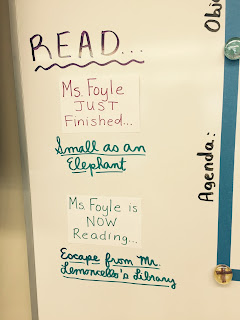 READ...
Ms. Foyle
JUST
Finished...
Small as an
Elephant
Ms. Foyle is
NOW
Reading...
Escape from Mr.
Lemoncello's Library
Obj
Agenda: